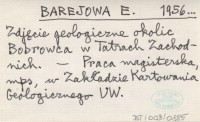 BAREJOWA E. 1956...
Zdjęcie geologiczne okolic
Bobrowca w Tatrach Zachod-
nich. — Praca magisterska,
mps, w Zakładzie Kartowania
Geologicznego UW.